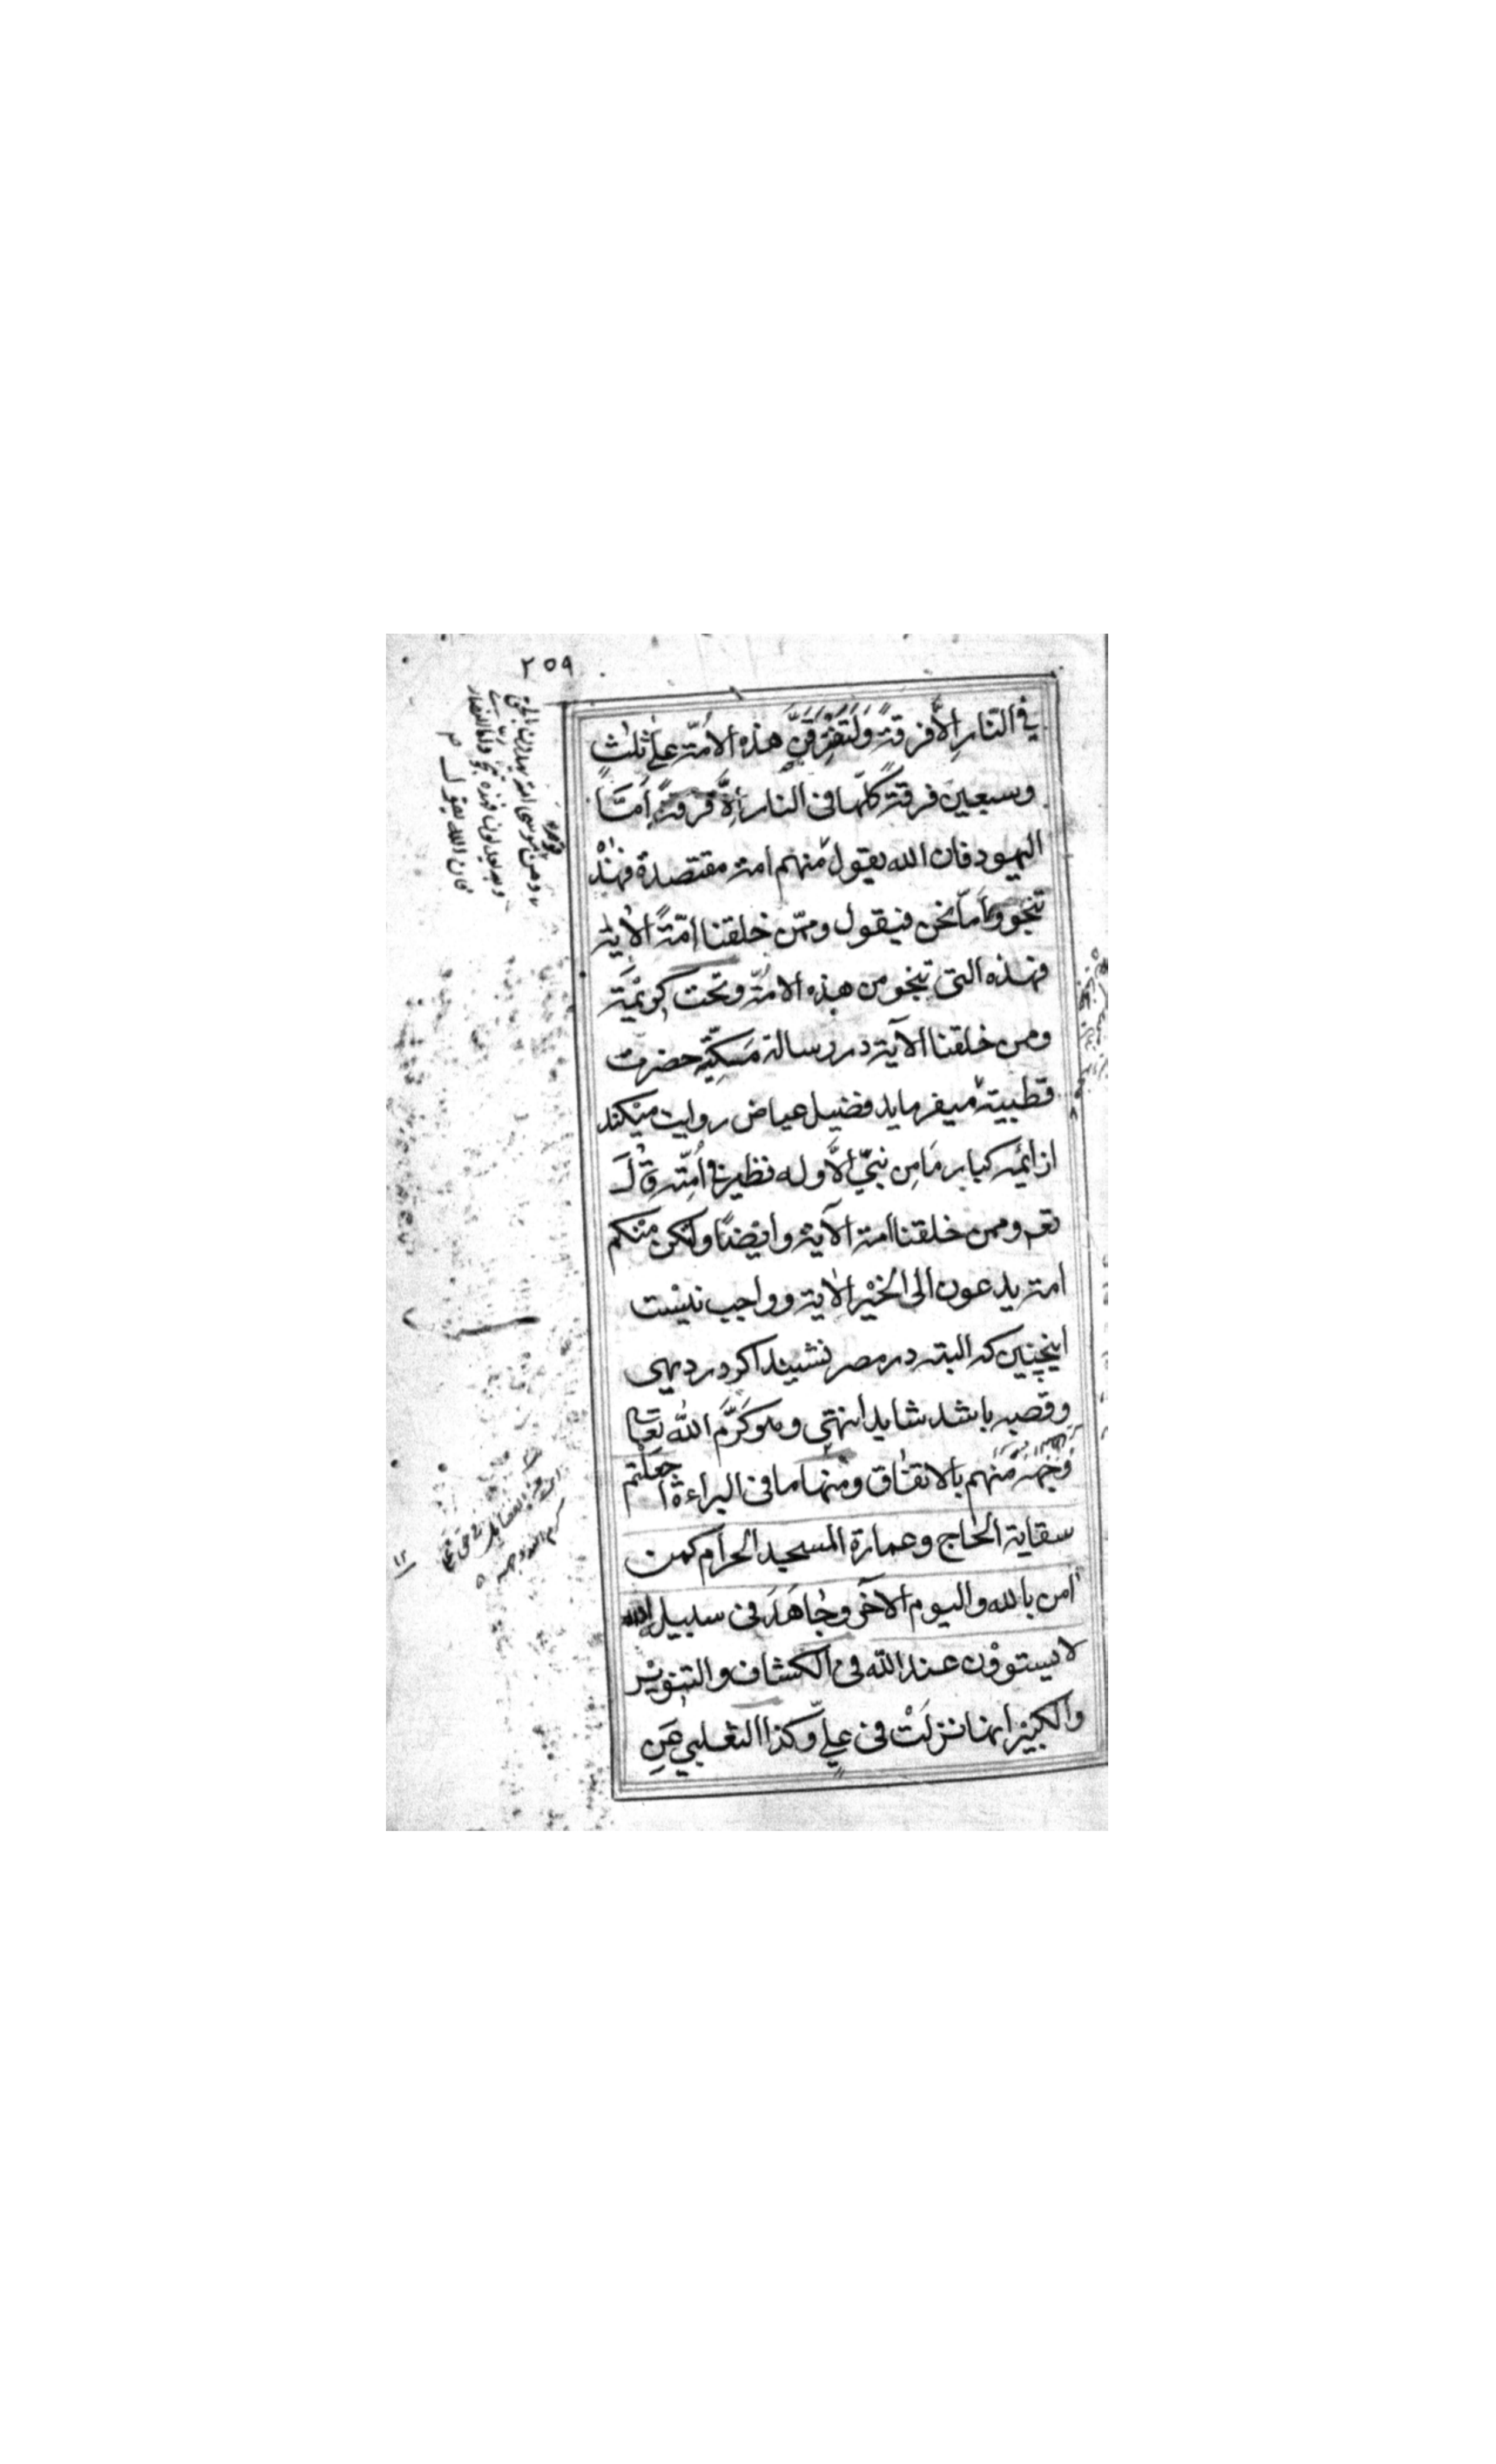 ٢٥٩
في النارِ الَّا فرقةً وَلَتَفْتَرِقَنَّ هذه الامّة علىٰ ثلٰث
وسبعين فرقةً كلّها في النار اِلَّا فرقةً اَمّا
اليهود فان الله يقول منهم امة مقتصدة فهٰذه
تنجو وأمّا نحن فيقول وممّن خلقنا امّةً الاٰية
فهذه التى تنجو من هذه الامّة وتحت كريمة
وممن خلقنا الآية در رسالة مَسكِيّه حضرت
قطبية ميفرمايد فضيل عياض روايت ميكند
از ائمه كبار مَا مِن نبيّ الَّا وله نظير في اُمّتِه قالَ
نعم وممن خلقنا امة الآية وايضًا ولتكن منكم
امة يدعون الى الخيْر الاٰية و واجب نيست
اينچنين كه البته در مصر نشيند اگر در ديهى
و قصبه باشد شايد انتهى و هو كَرَّمَ اللّٰه تعالى
وَجْهَهُ منهم بالاتفاق ومنها ما فى البراءة اجعلتم
سقاية الحٰاج وعمارة المسجد الحرام كمن
اٰمن بالله واليوم الاٰخر وجٰاهَدَ فى سبيل الله
لا يستوٗن عند اللّٰه فى الكشاف والتنوير
والكبير انها نزلَتْ فى عليّ وكذا الثعلبي عَنِ
ومن قوم موسى امة يهدون بالحق
وبه يعدلون فهذه تنجو واما النصارى
فان الله يقول
كرم الله وجهه
١٢